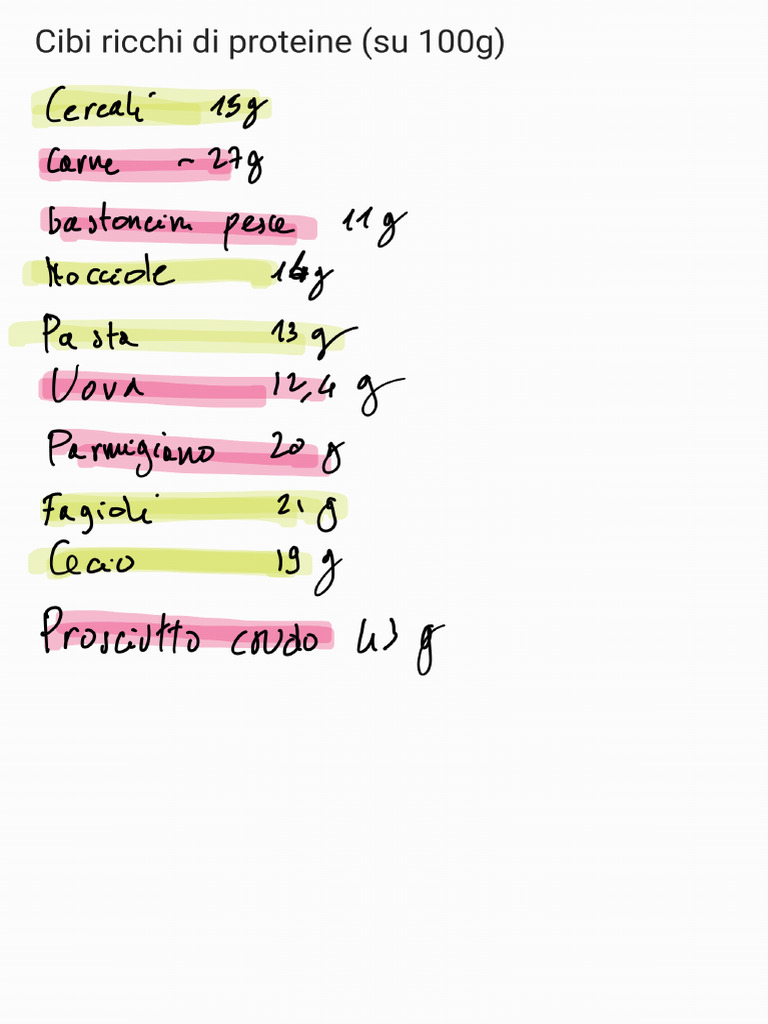 Cibi ricchi di proteine (su 100g)
Cereali 15g
Carne ~ 27g
bastoncini pesce 11 g
Nocciole g
Pasta 13 g
Uova 12,4 g
Parmigiano 20 g
Fagioli 21 g
19 g
Prosciutto crudo 43 g